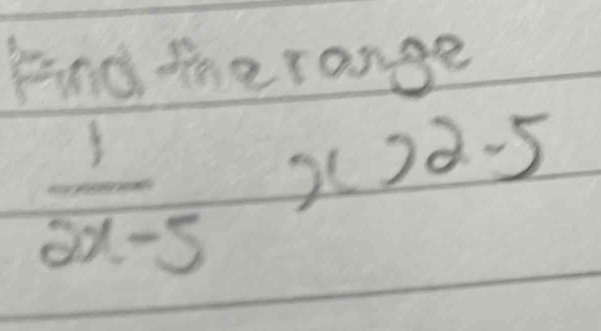 Find the range
1/(2x-5) x > 2-5